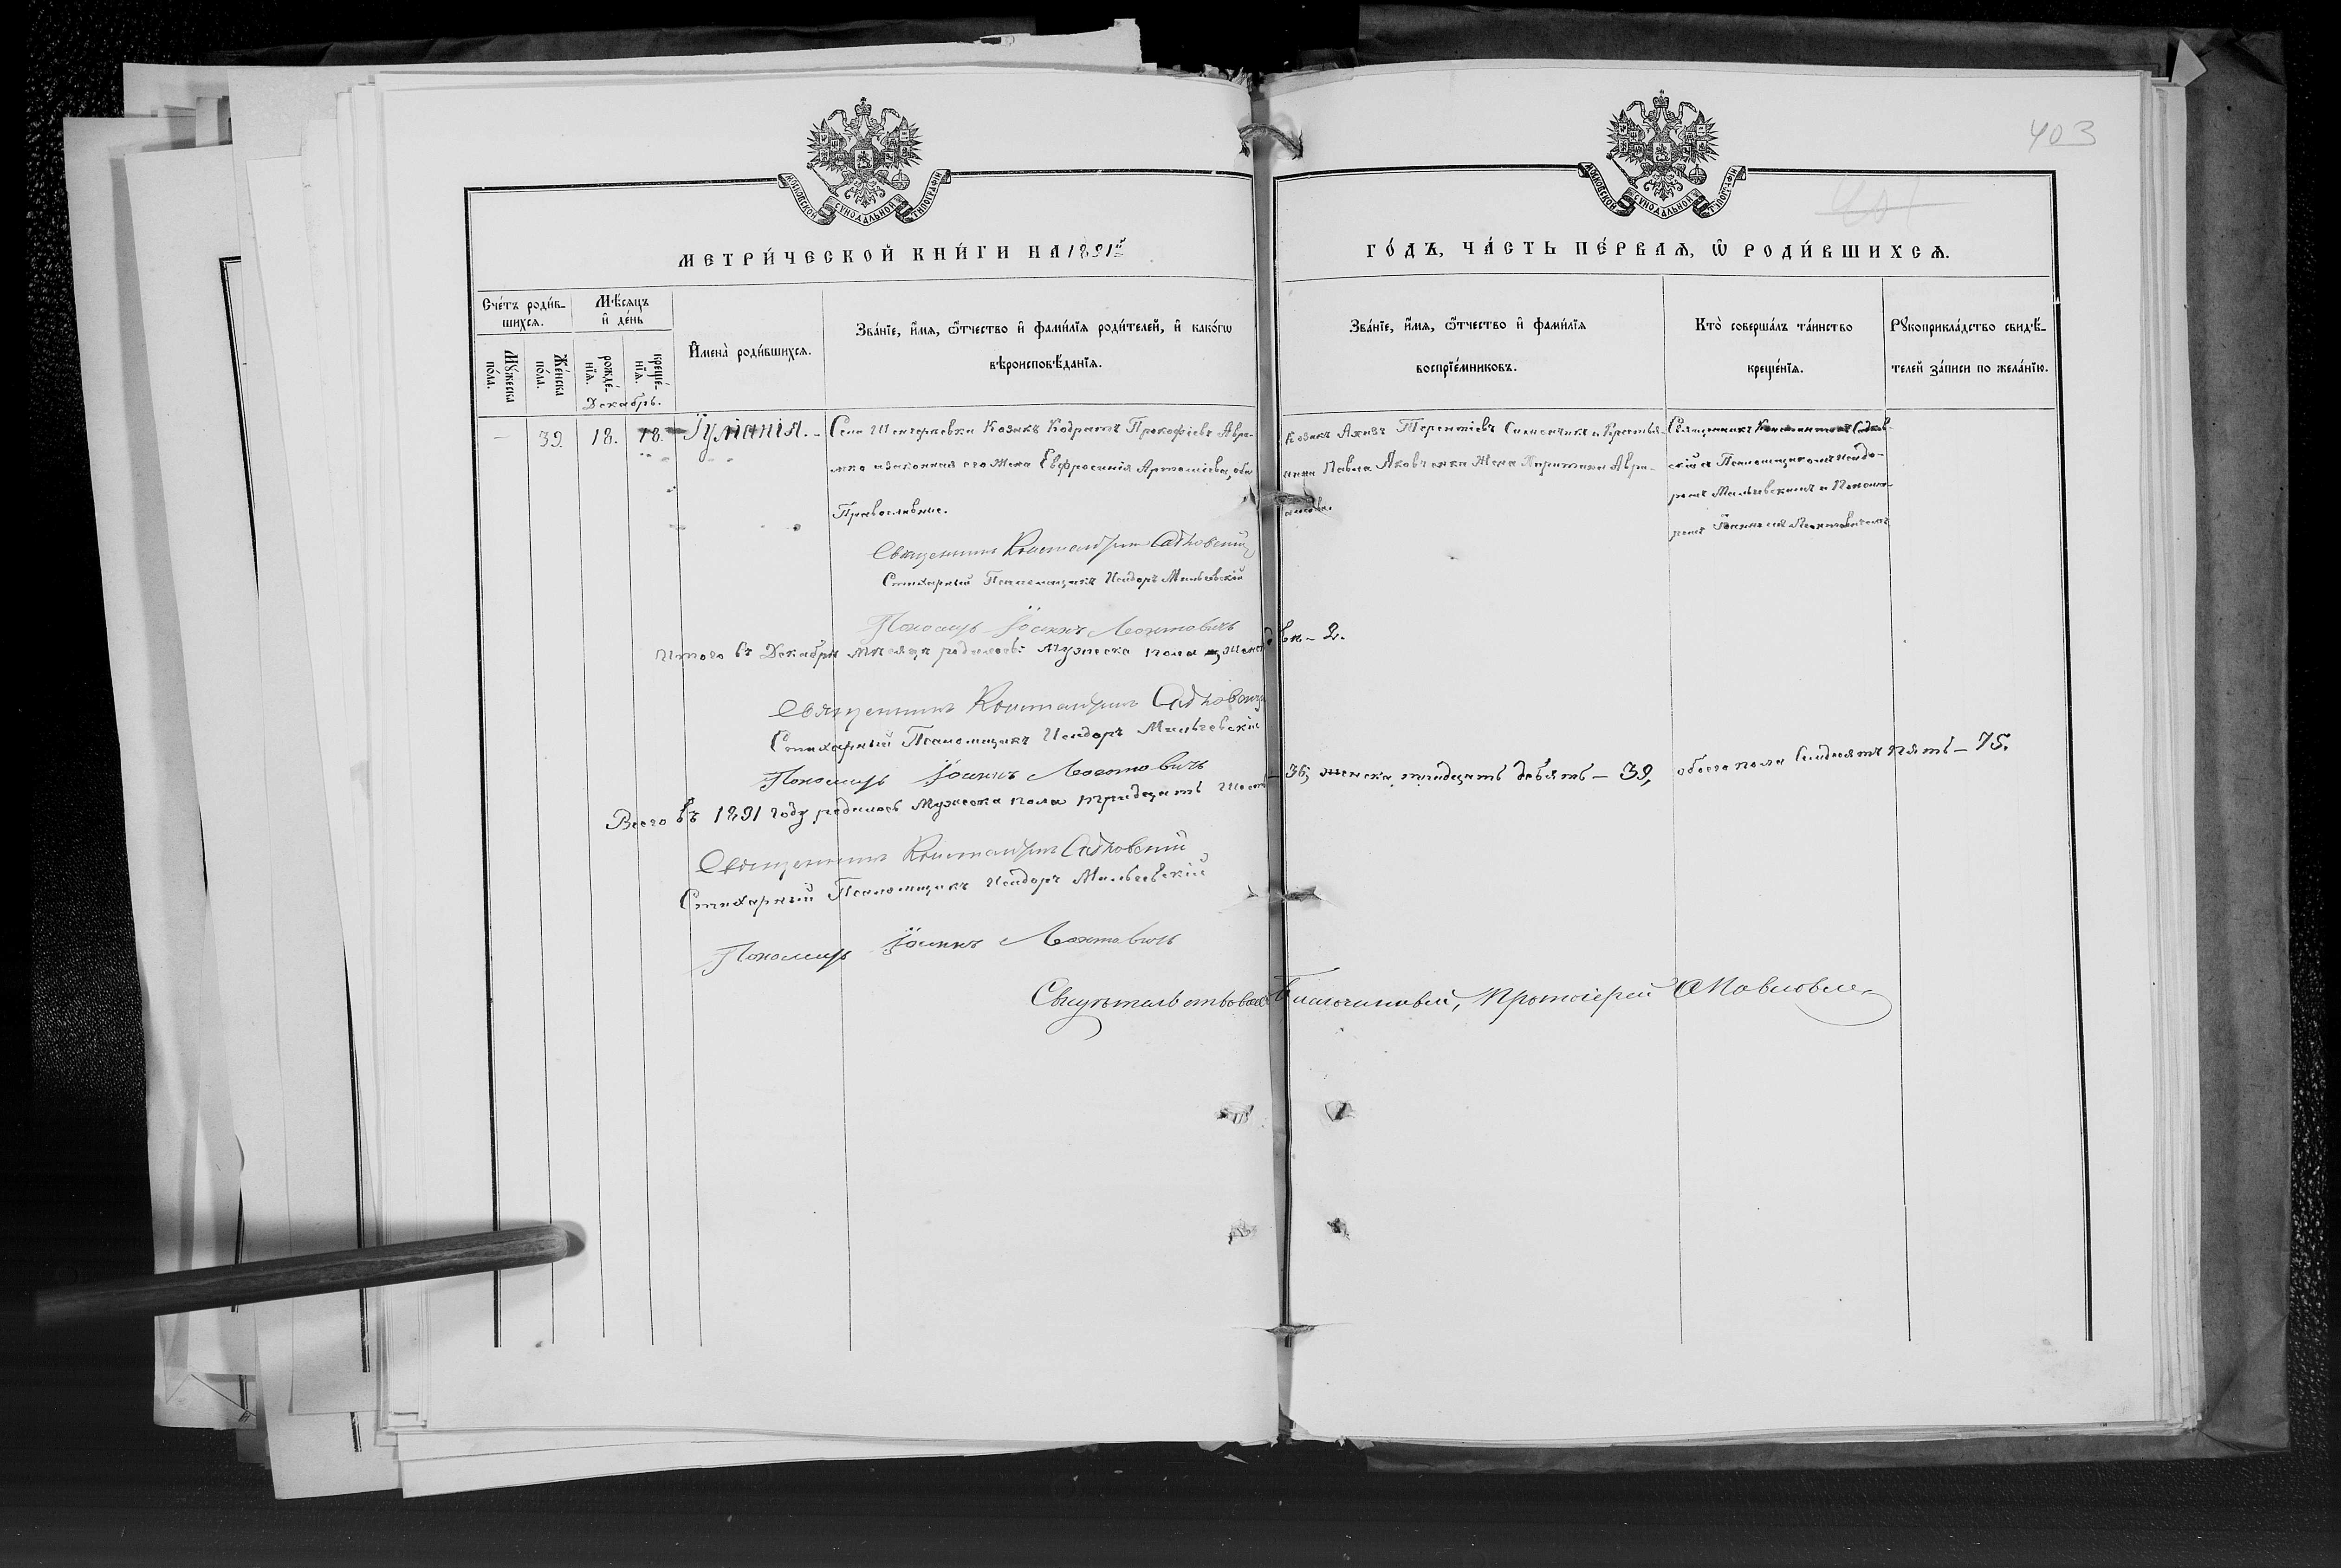 403
МОСКОВСКОЙ СѴНОДАЛЬНОЙ ТИПОГРАФІИ
МОСКОВСКОЙ СѴНОДАЛЬНОЙ ТИПОГРАФІИ
401
МЕТРИ́ЧЕСКОЙ КНИ́ГИ НА 1891й
ГО́ДЪ, ЧА́СТЬ ПЕ́РВАѦ, Ѿ РОДИ́ВШИХСѦ.
Сче́тъ роди́в-
шихсѧ.
Мѣ́сѧцъ
и҆ де́нь
Мꙋ́жеска по́ла.
Же́нска по́ла.
рожде́-нїѧ.
креще́-нїѧ.
И҆мена̀ роди́вшихсѧ.
Зва́нїе, и҆́мѧ, ѻ҆́тчество и҆ фами́лїѧ роди́телей, и҆ како́гѡ
вѣроисповѣ́данїѧ.
Зва́нїе, и҆́мѧ, ѻ҆́тчество и҆ фами́лїѧ
воспрїе́мниковъ.
Кто̀ соверша́лъ та́инство
креще́нїѧ.
Рꙋкоприкла́дство свидѣ́-
телей за́писи по жела́нїю.
Декабрь.
— 39 18. 18. Іуліанія. Села Козакъ Кодратъ Прокофіевъ Авра-
менко и законная его жена Евфросинія Артеміева, оба
Православные.
Козакъ Терентіевъ и Крестья-
нина Павла Яковченка жена Харитина Авра-
амова.
Священникъ Константинъ Садков-
скій съ Псаломщикомъ Исидо-
ромъ Мильчевскимъ и Понома-
ремъ Іоанномъ Леонтовичемъ
Священникъ Константинъ Садковскій
Стихарный Псаломщикъ Исидоръ Мильчевскій
Пономарь Іоаннъ Леонтовичъ
Итого въ Декабрѣ мѣсяцѣ родилось: мужеска пола
— 2.
Священникъ Константинъ Садковскій
Стихарный Псаломщикъ Исидоръ Мильчевскій
Пономарь Іоаннъ Леонтовичъ
Всего въ 1891 году родилось мужеска пола тридцать шесть — 36, женска тридцать девять — 39, обоего пола семдесятъ пять — 75.
Священникъ Константинъ Садковскій
Стихарный Псаломщикъ Исидоръ Мильчевскій
Пономарь Іоаннъ Леонтовичъ
Свидѣтельствовалъ Благочинный, Протоіерей